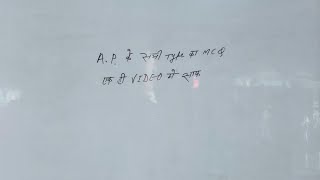 A.P. के सभी Type का MCQ
एक ही VIDEO में साफ